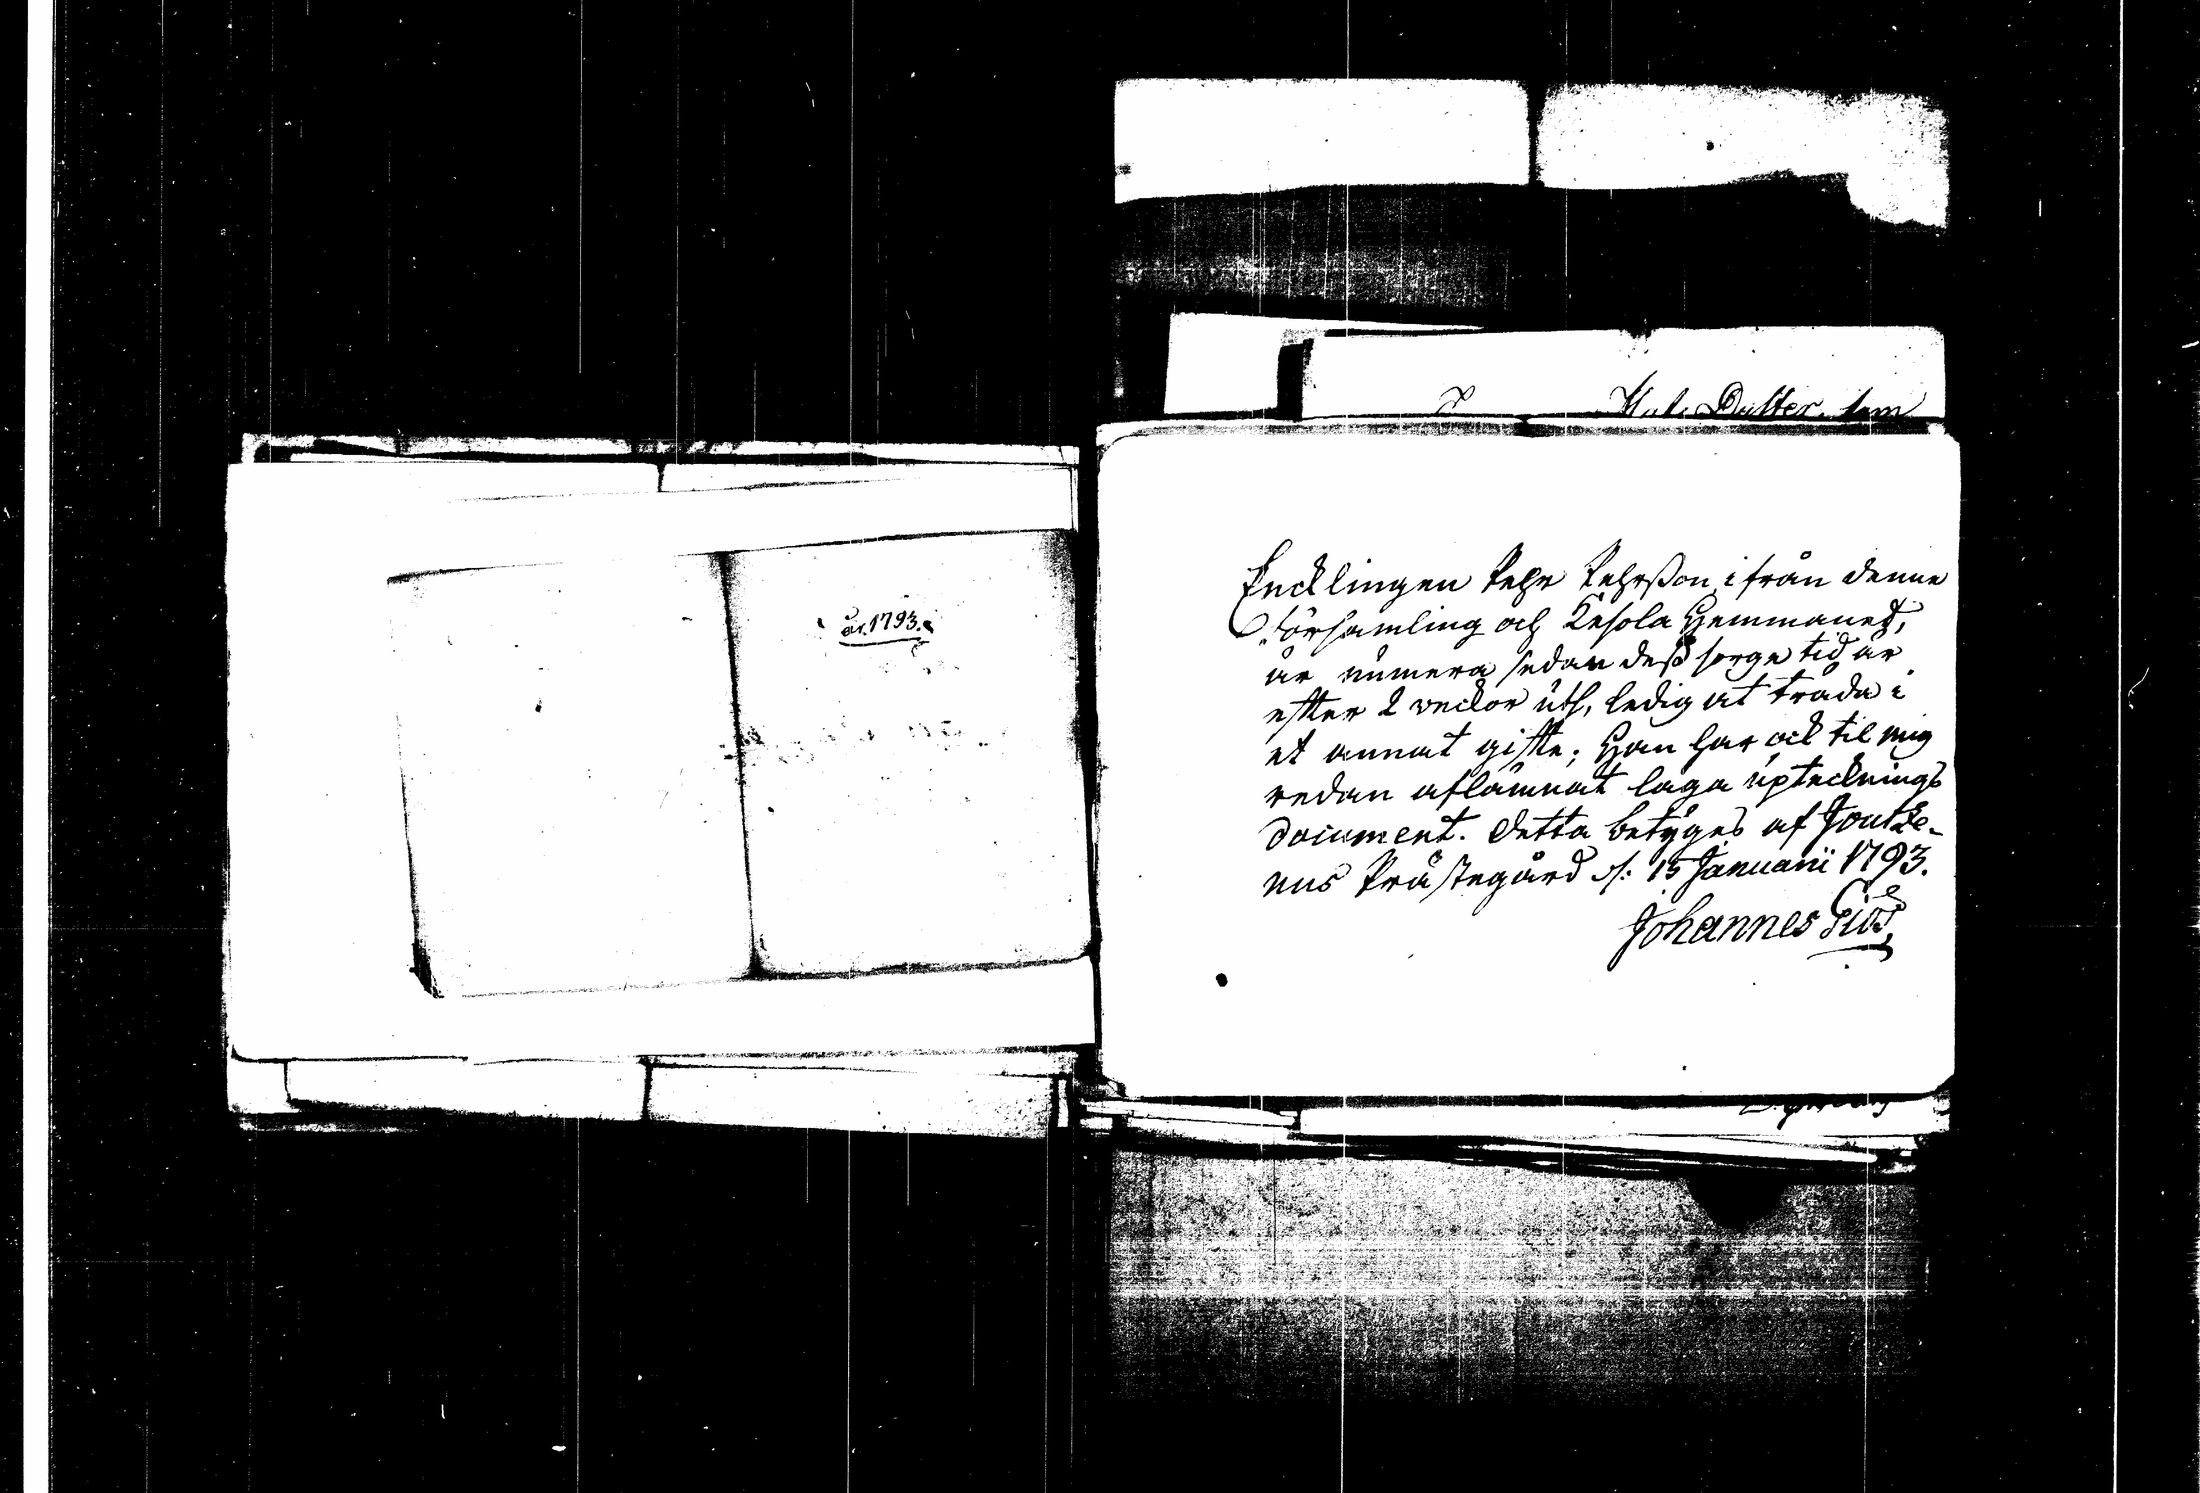 år 1793.
Dotter, som
Encklingen Pehr Pehrßon, ifrån denne
församling och Kesola Hemmanet,
är nümera sedan deß sorge tid är
efter 2 veckor ute, ledig at träda i
et annat gifte; Han har ock til mig
redan aflämnat laga üptecknings
document. Detta betyges af Joutze-
nus Prästegård d: 15 Januarii 1793.
Johannes